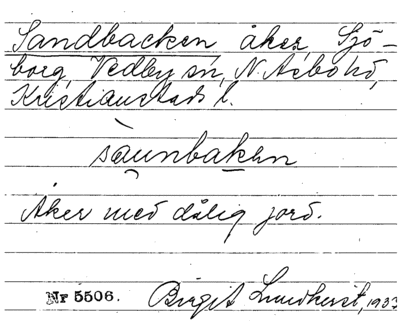 Sandbacken, åker, Sjö-
borg, Vedby sn, N. Åsbo hd,
Kristianstads l.
sàunbaken
Åker med dålig jord.
Nr 5506. Birgit Lundkvist, 1933